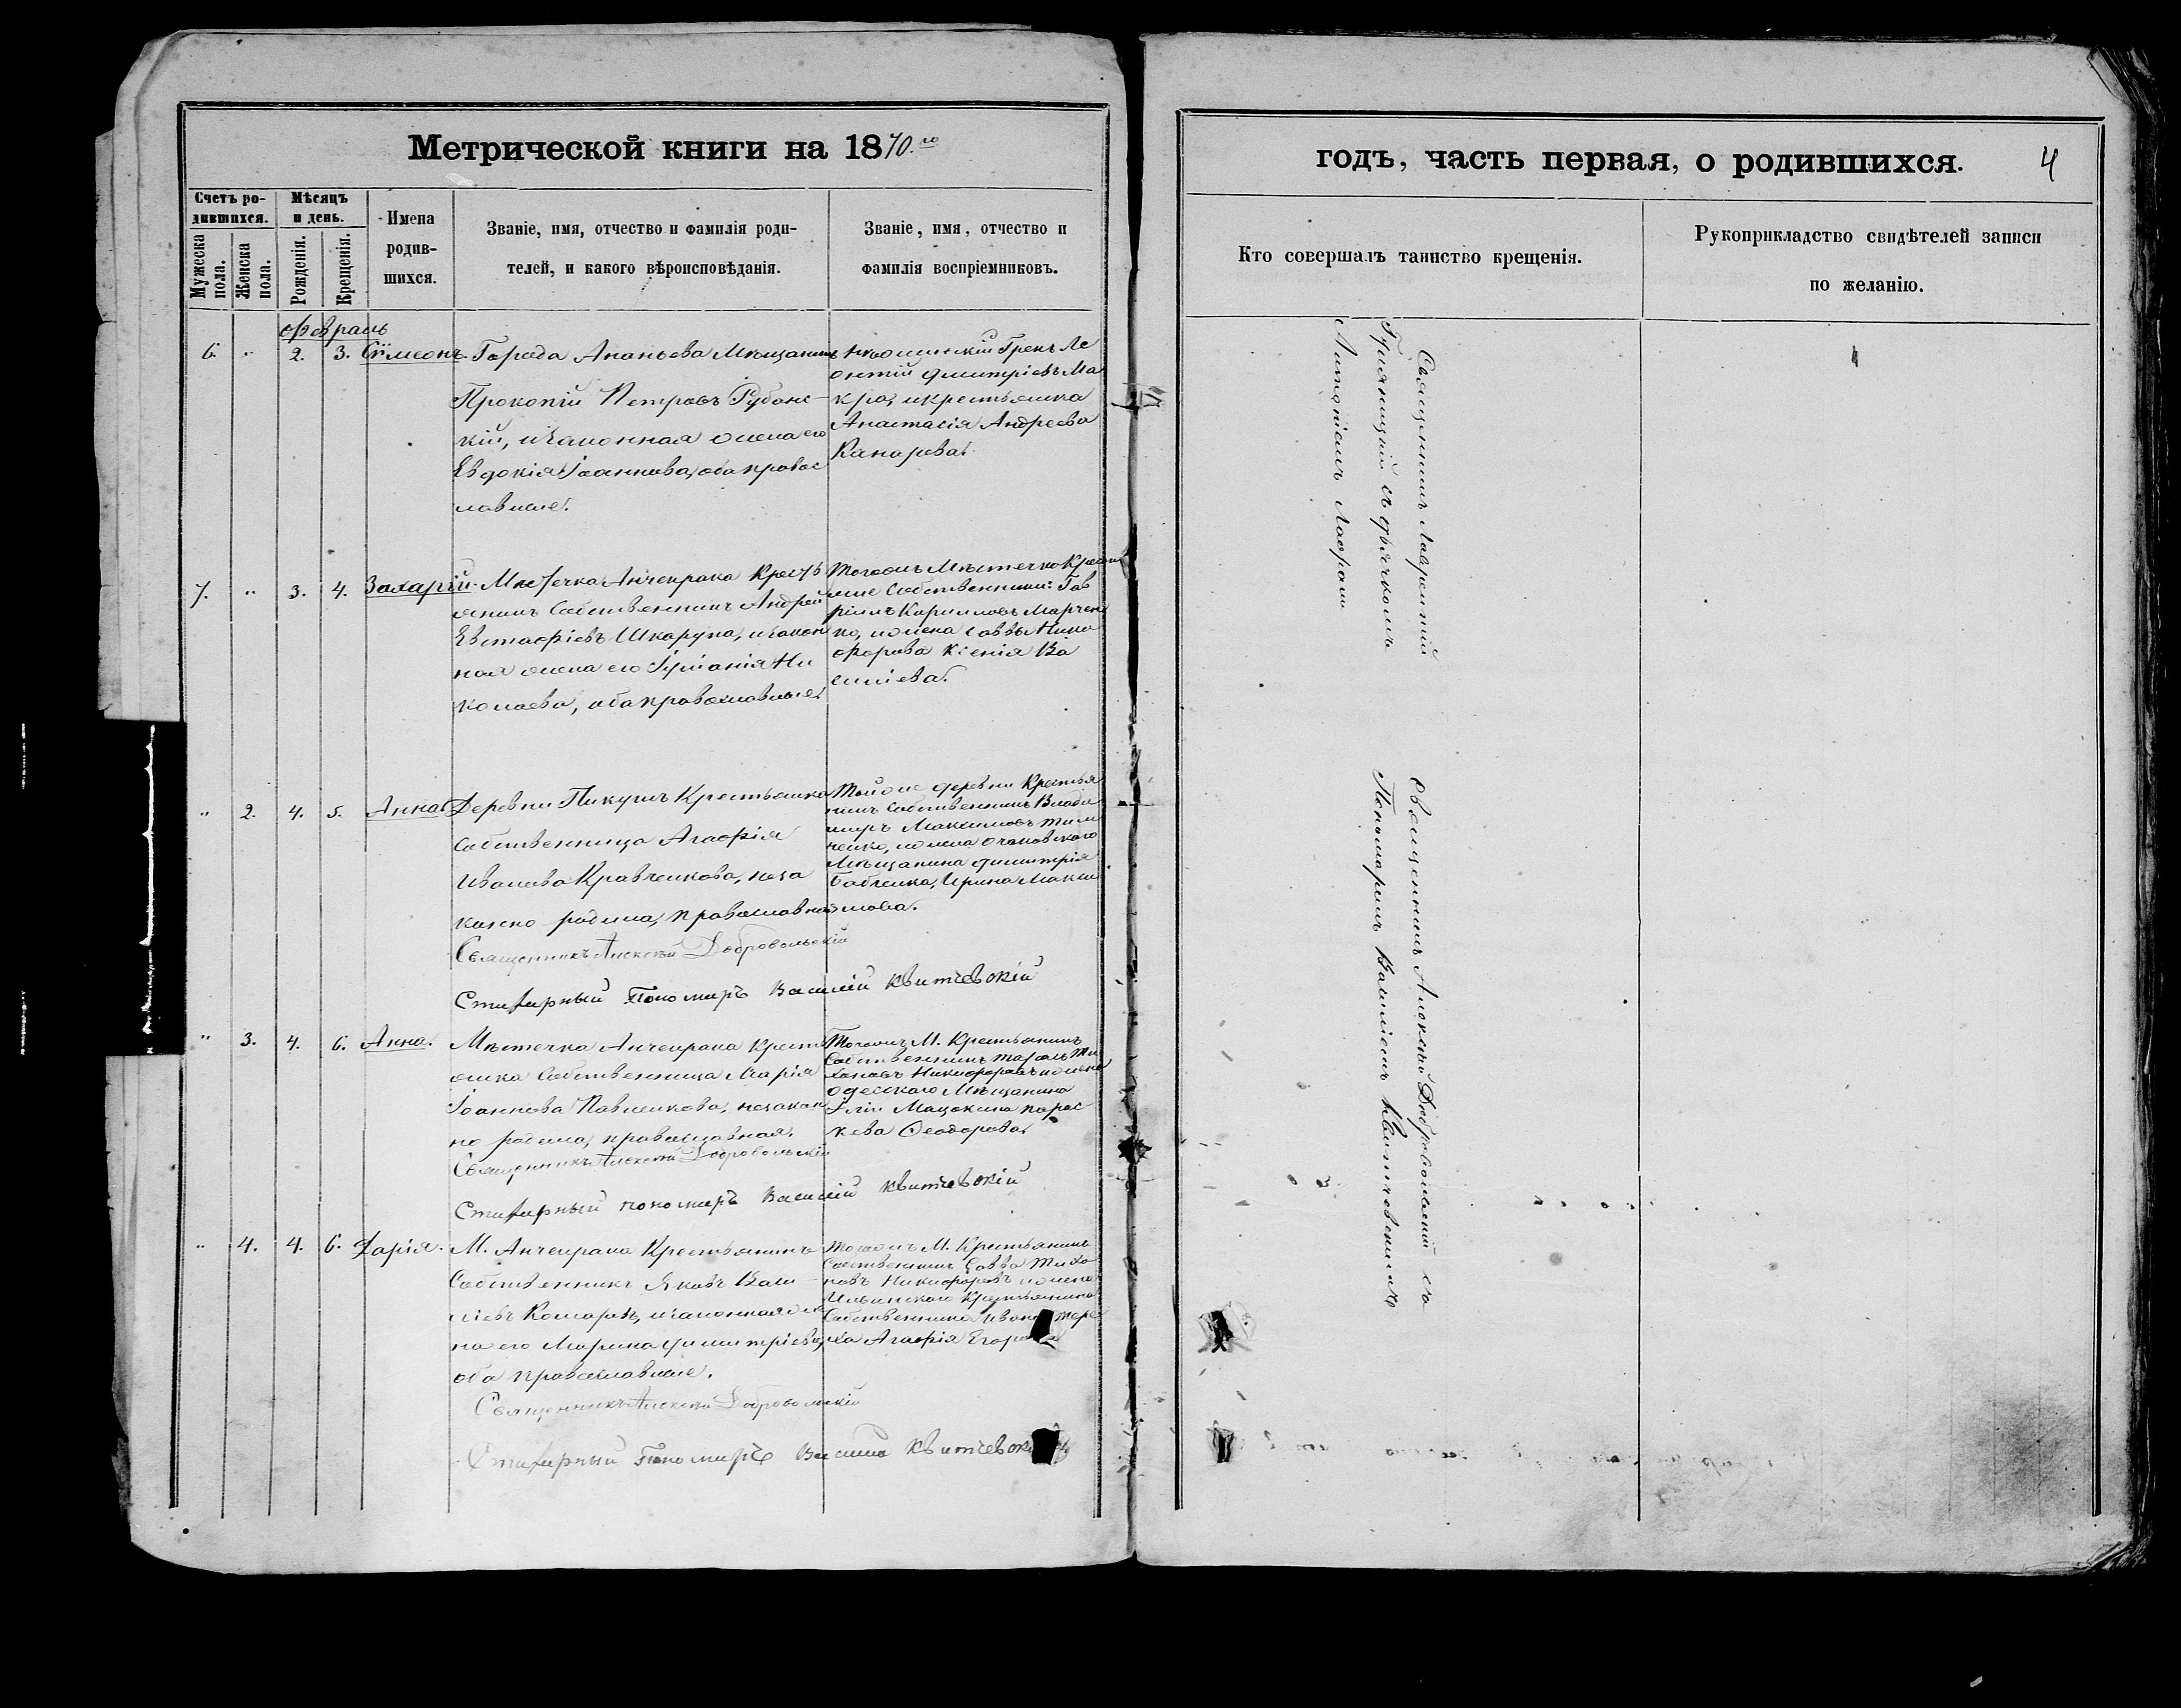 Метрической книги на 1870.го
годъ, часть первая, о родившихся.
4
Счетъ ро-
дившихся.
Мѣсяцъ
и день.
Мужеска
пола.
Женска
пола.
Рожденія.
Крещенія.
Имена
родив-
шихся.
Званіе, имя, отчество и фамилія роди-
телей, и какого вѣроисповѣданія.
Званіе, имя, отчество и
фамилія воспріемниковъ.
Кто совершалъ таинство крещенія.
Рукоприкладство свидѣтелей записи
по желанію.
февраль
6. " 2. 3. Сѵмеонъ.
Города Ананьева Мѣщанинъ
Прокопій Петровъ Рубанс-
кій, и законная жена его
Евдокія Іоаннова, оба правос
лавные.
Грекъ Ле
онтій Димитріевъ Ма
кра, и крестьянка
Анастасія Андреева
Канарева.
Священникъ Лаврентій
съ дьячкомъ
7. " 3. 4. Захарій.
Местечка Анчекрака Кресть
янинъ Собственникъ Андрей
Евстафіевъ Шкарупа, и закон
ная жена его Іуліанія Ни
колаева, оба православные.
Тогожъ Мѣстечка Крестья
не Собственники: Гав
ріилъ Кирилловъ Марчен
ко, и жена Саввы Ники
форова Ксенія Ва
силіева.
" 2. 4. 5. Анна
Деревни Крестьянка
Собственница Агафія
Иванова Кравченкова, неза
конно родила, православная
Священникъ Алексѣй Добровольскій
Стихарный Пономарь Василій Квитчевскій
Тойже деревни Крестья
нинъ Собственникъ Влади
миръ Максимовъ Тим
ченко, и жена очаковского
Мѣщанина Димитрія
Бабченка, Ирина Макси
мова.
Священникъ Алексѣй Добровольскій съ
Пономаремъ Василіемъ Квитчевскимъ
" 3. 4. 6. Анна.
Мѣстечка Анчекрака Кресть
янка Собственница Марія
Іоаннова Павленкова, незакон
но родила, православная.
Священникъ Алексѣй Добровольскій
Стихарный пономарь Василій Квитчевскій
Тогожъ М. Крестьянинъ
Собственникъ Тарасъ Ти
хоновъ Никифоровъ и жена
одесского Мѣщанина
Іліи Мацокина Парас
кева Ѳеодорова.
" 4. 4. 6. Дарія.
М. Анчекрака Крестьянинъ
Собственникъ Яковъ Васи
ліевъ Комаровъ, и законная же
на его Марина Димитріева,
оба православные.
Священникъ Алексѣй Добровольскій
Стихарный Пономарь Василій
Тогожъ М. Крестьянинъ
Собственникъ Савва Тихо
новъ Никифоровъ и жена
Крестьянина
Собственника Ивана
Агафія